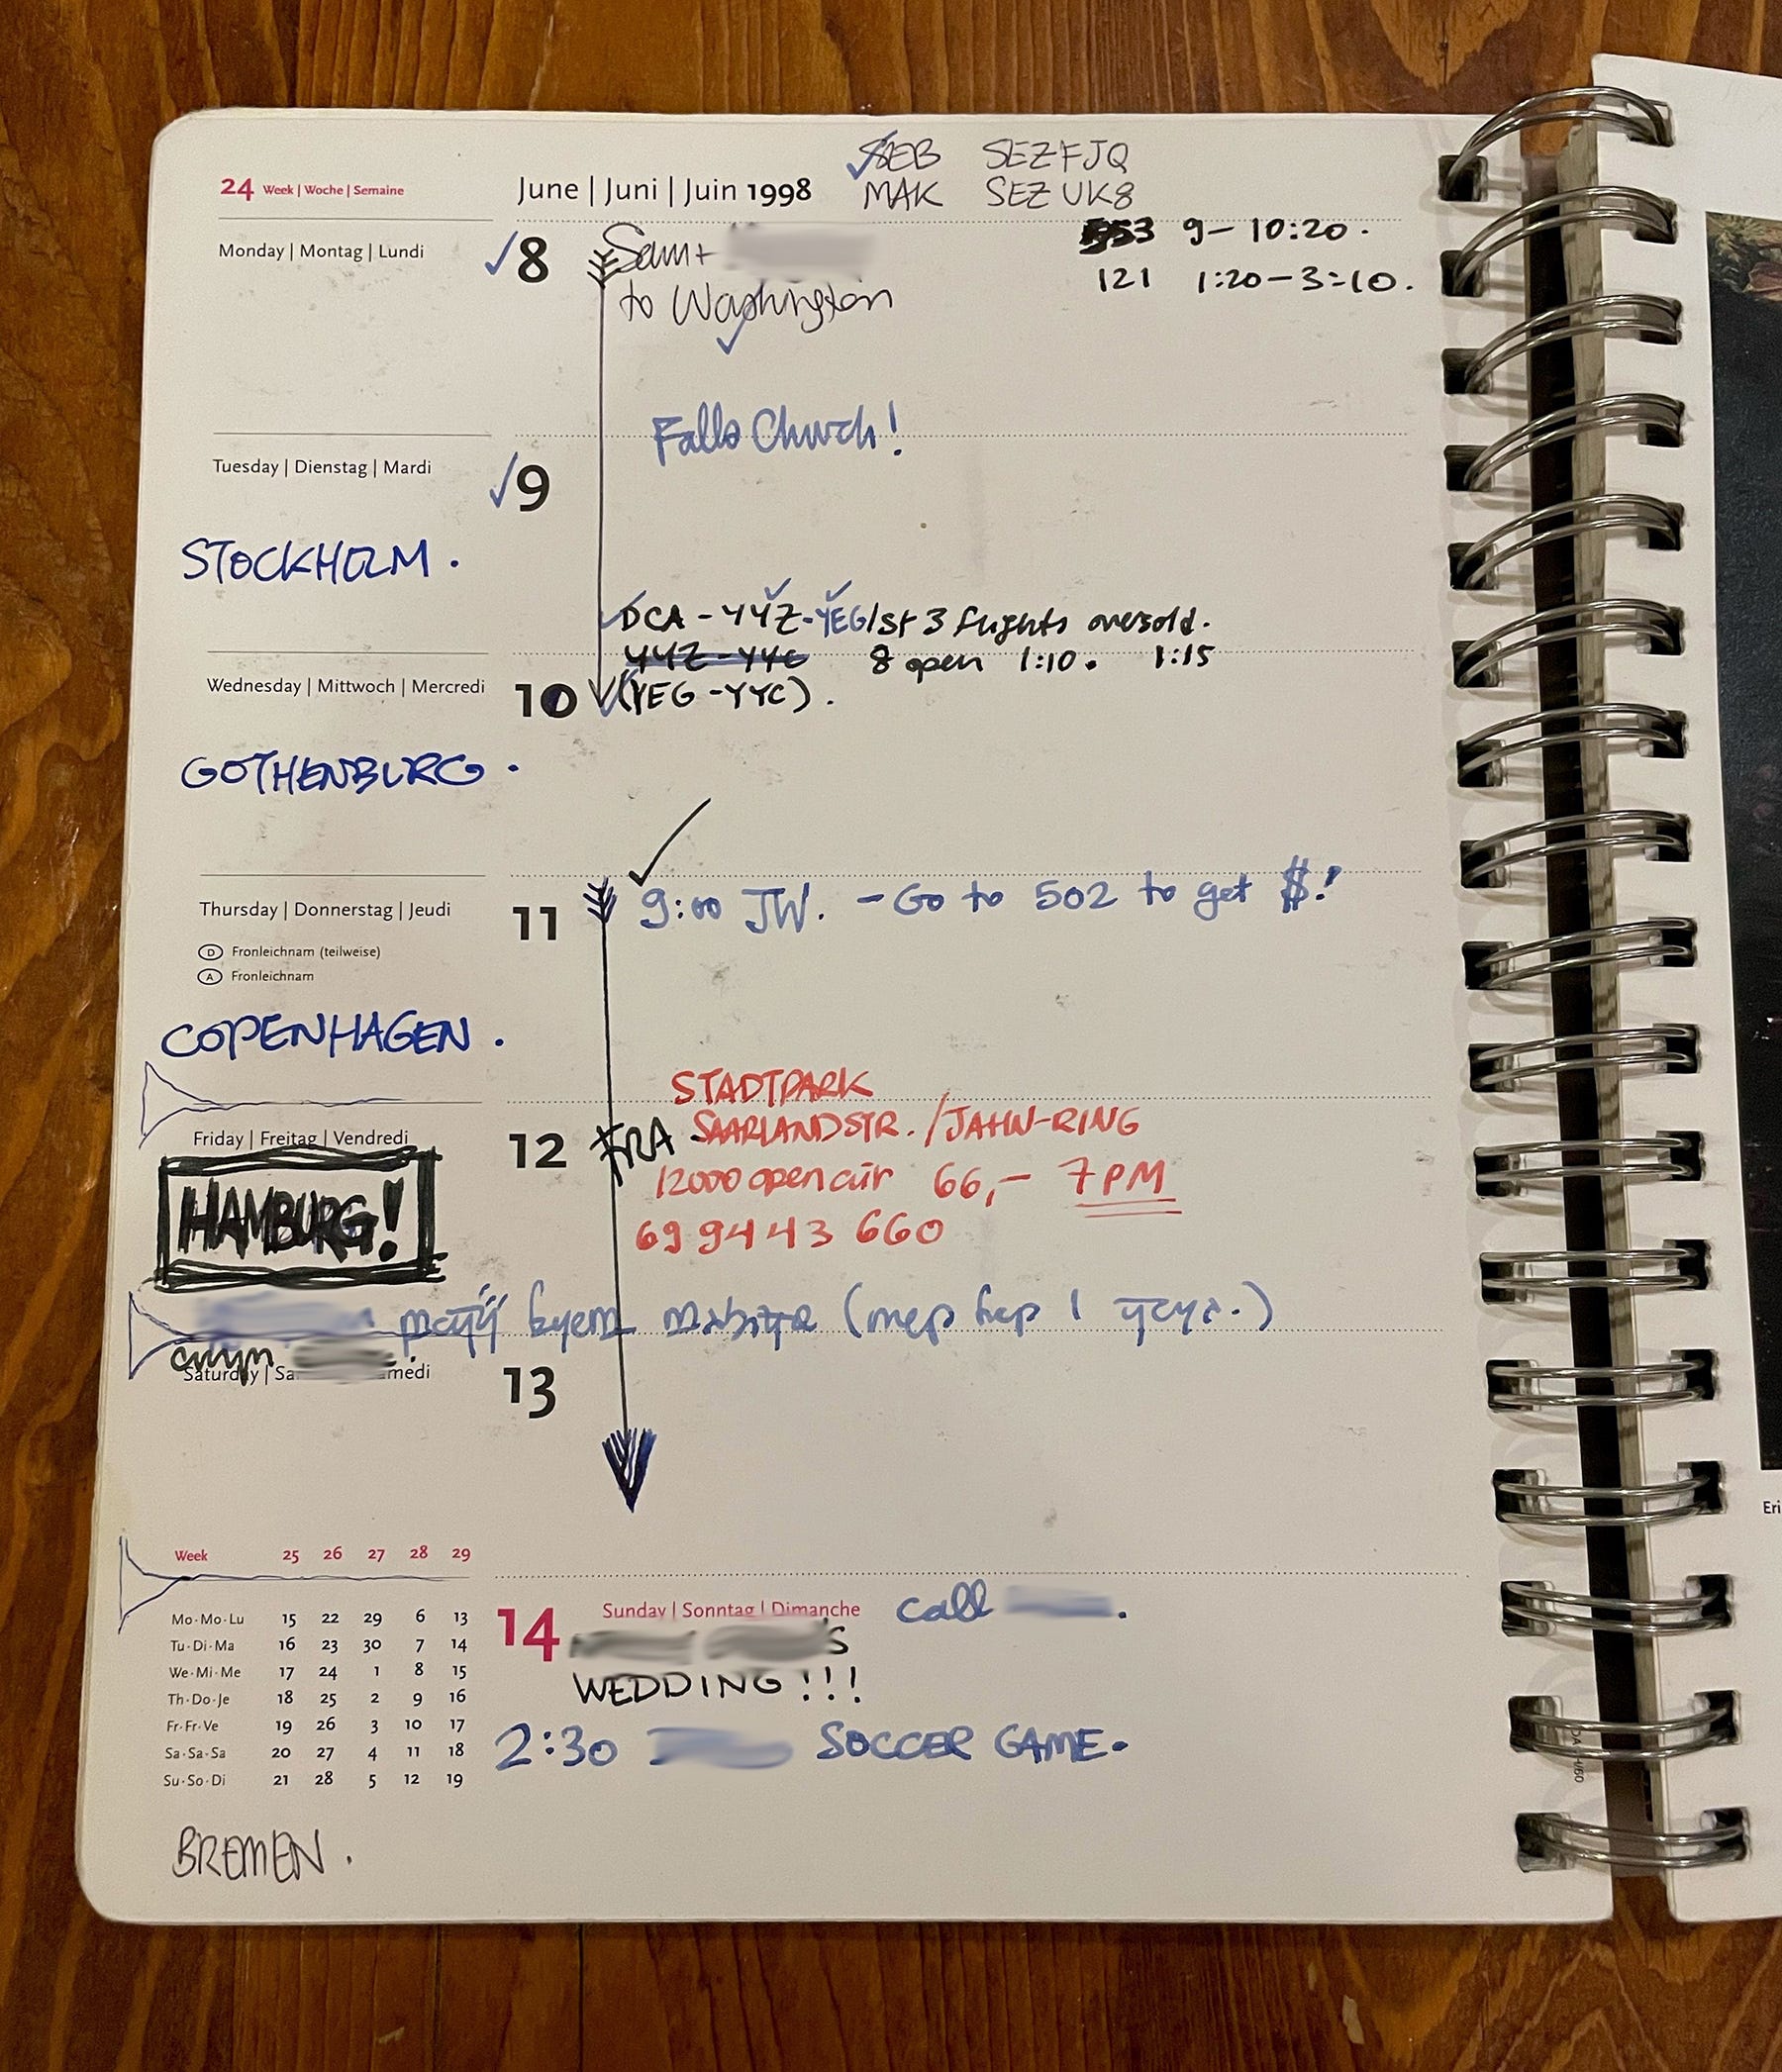 SEB SEZFJQ
MAK SEZUK8
24 Week | Woche | Semaine
June | Juni | Juin 1998
53 9-10:20.
121 1:20-3:10.
Monday | Montag | Lundi
8
Sam +
to Washington
Falls Church!
Tuesday | Dienstag | Mardi
9
STOCKHOLM.
DCA - YYZ - YEG 1st 3 flights oversold.
YYZ - YYC 8 open 1:10. 1:15
Wednesday | Mittwoch | Mercredi
10
(YEG - YYC).
GOTHENBURG.
Thursday | Donnerstag | Jeudi
11
9:00 JW. - Go to 502 to get $!
D Fronleichnam (teilweise)
A Fronleichnam
COPENHAGEN.
STADTPARK
Friday | Freitag | Vendredi
12
FRA SAARLANDSTR. / JAHN-RING
12000 open air 66,- 7PM
HAMBURG!
69 94 43 660
Saturday | Sa medi
13
Week 25 26 27 28 29
Mo·Mo·Lu 15 22 29 6 13
Tu·Di·Ma 16 23 30 7 14
We·Mi·Me 17 24 1 8 15
Th·Do·Je 18 25 2 9 16
Fr·Fr·Ve 19 26 3 10 17
Sa·Sa·Sa 20 27 4 11 18
Su·So·Di 21 28 5 12 19
14
Sunday | Sonntag | Dimanche
call
's
WEDDING!!!
2:30 SOCCER GAME.
BREMEN.
Eri